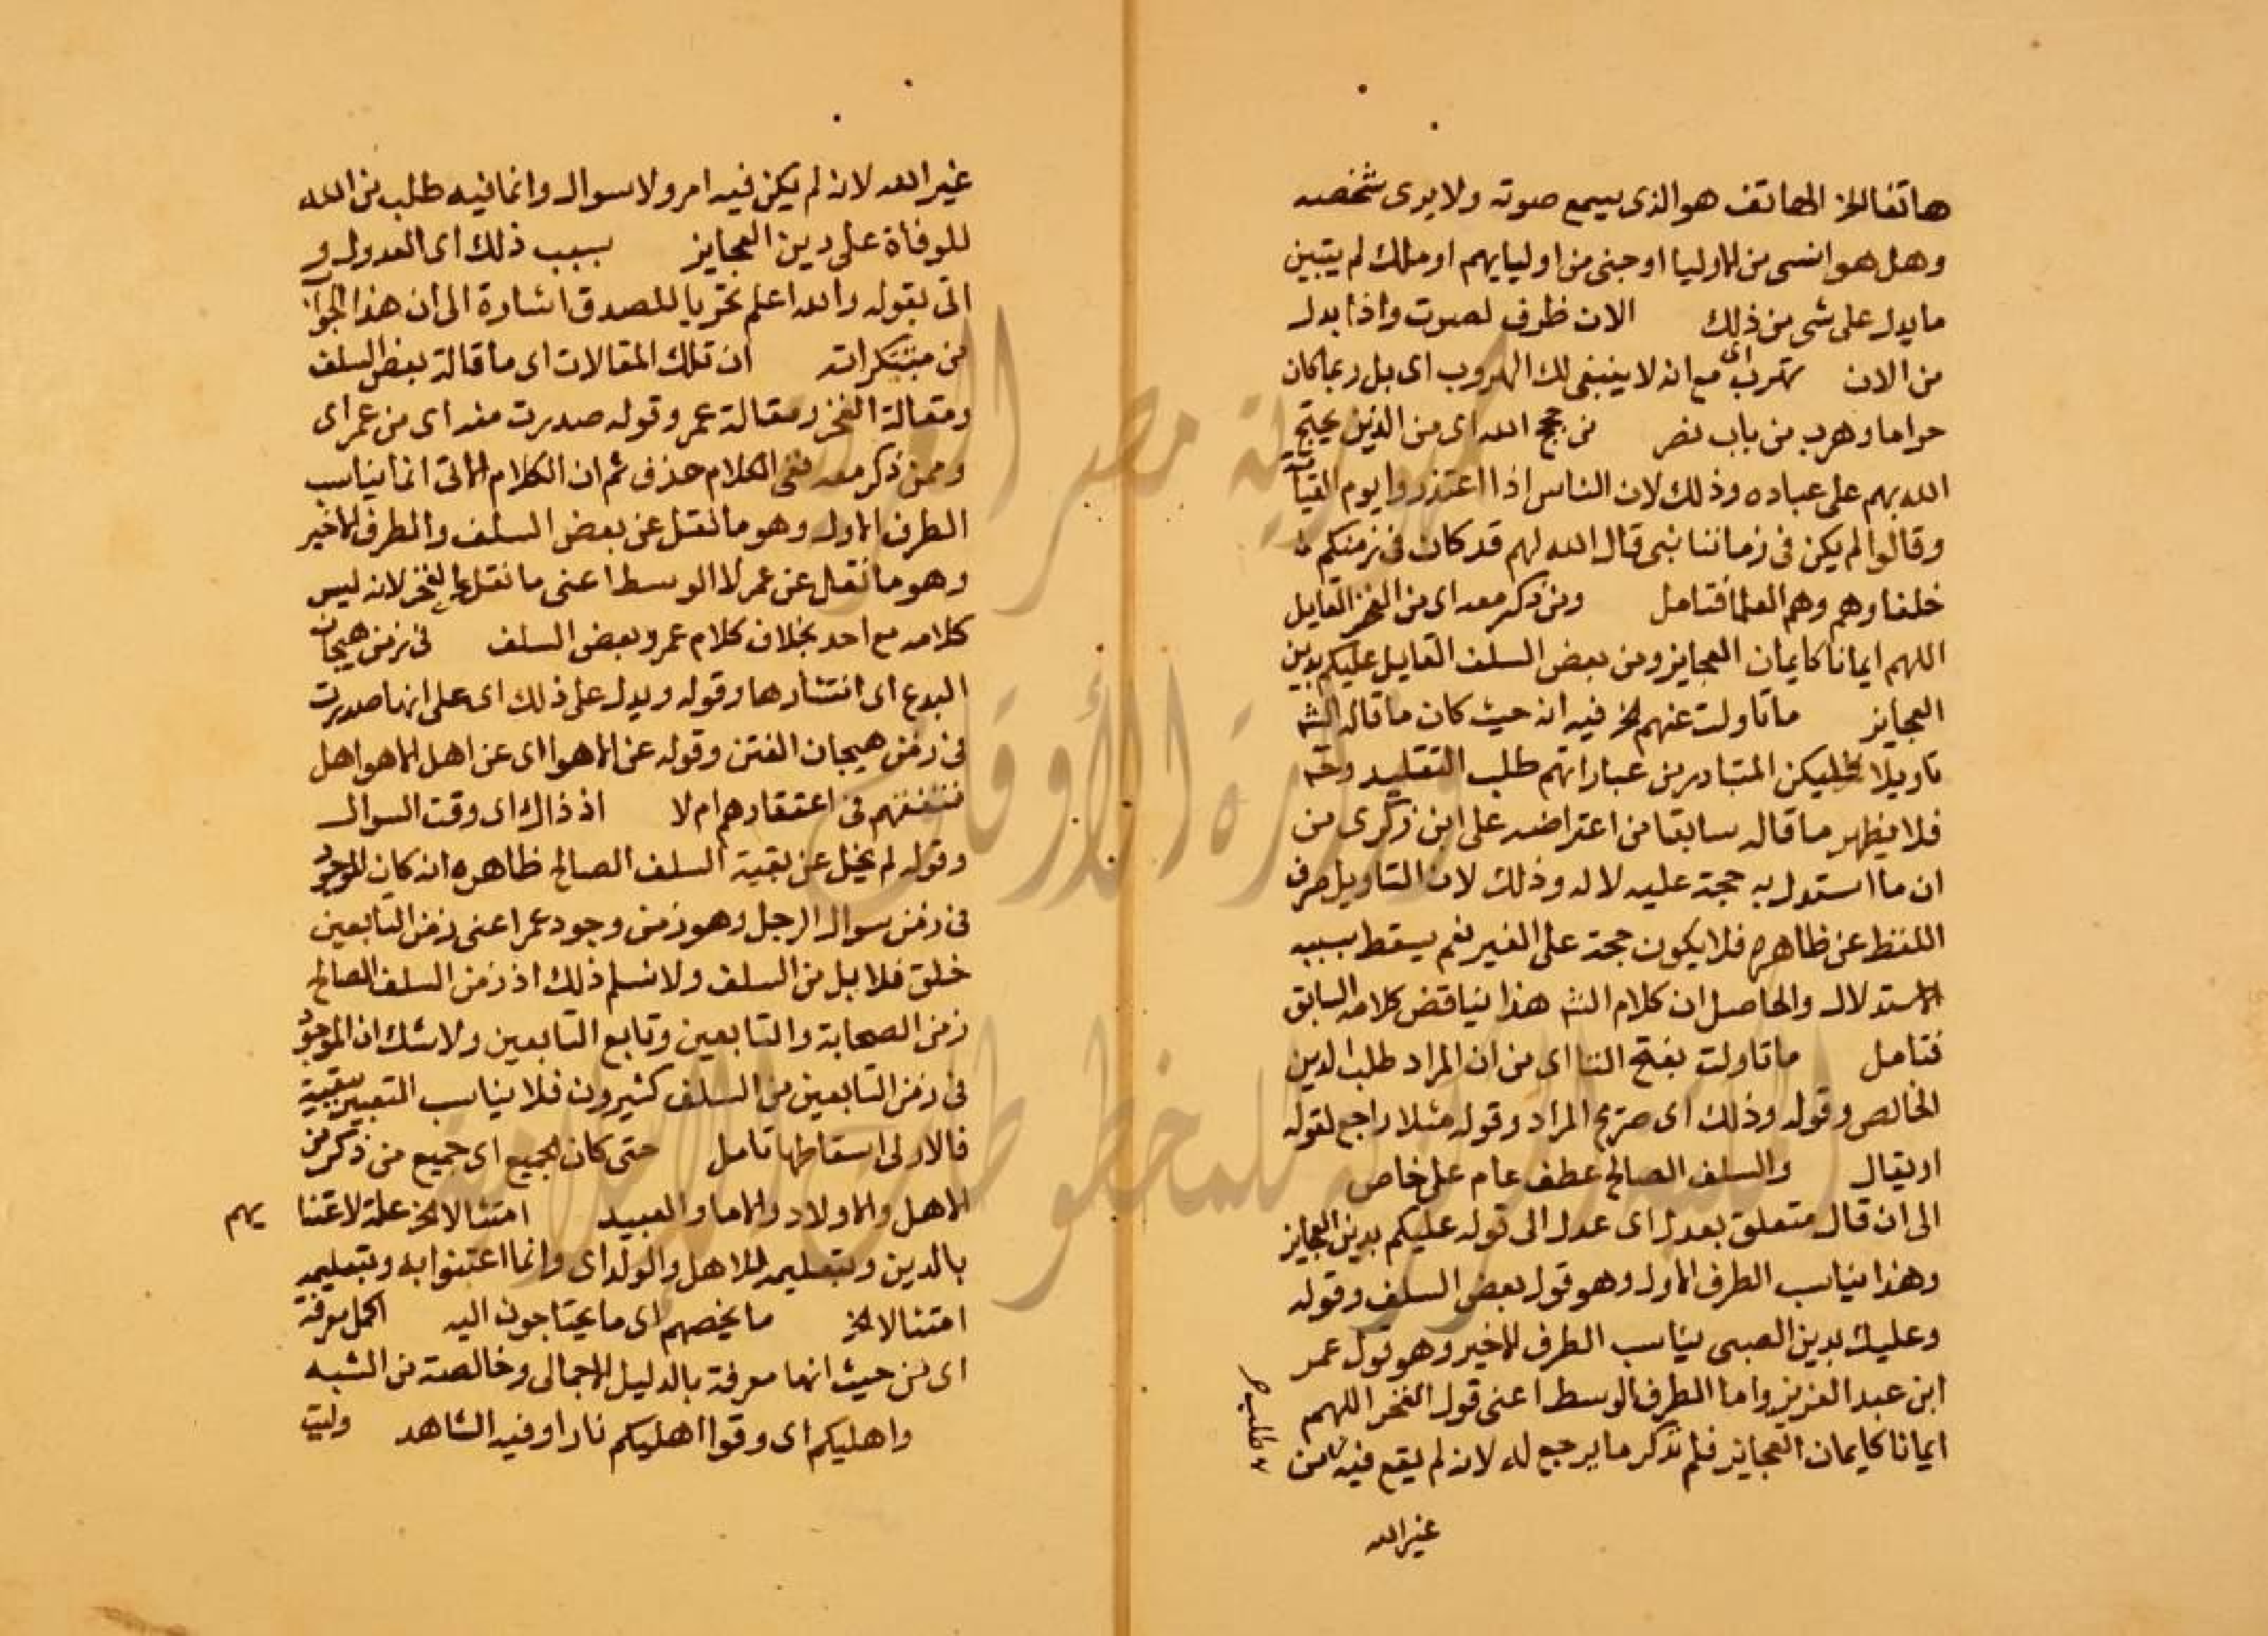 هاتفا الخ الهاتف هو الذى يسمع صوته ولا يرى شخصه
وهل هو انسى من الاوليا او جنى من اوليايهم او ملك لم يتبين
ما يدل على شى من ذلك الان ظرف لصوت واذا بدل
من الان تهرب اى مع انه لا ينبغى لك الهروب اى بل ربما كان
حراما وهرب من باب نصر من حجج الله اى من الذين يحتج
الله بهم على عباده وذلك لان الناس اذا اعتذروا يوم القيامة
وقالوا لم يكن فى زماننا نبى قال الله لهم قد كان فى زمنكم
خلفاوهم وهم العلما فتامل ومن ذكر معه اى من الفخر القايل
اللهم ايمانا كايمان العجايز ومن بعض السلف القايل عليكم بدين
العجايز ما تاولت عنهم الخ فيه انه حيث كان ما قاله الش
تاويلا فليكن المتبادر من عباراتهم طلب التقليد وح
فلا يظهر ما قاله سابقا من اعتراضه على ابن زكرى من
ان ما استدل به حجة عليه لا له وذلك لان التاويل صرف
اللفظ عن ظاهره فلا يكون حجة على الغير نعم يسقط بسببه
الاستدلال والحاصل ان كلام الش هذا يناقض كلامه السابق
فتامل ما تاولت بفتح التا اى من ان المراد طلب الدين
الخالص وقوله وذلك اى صريح المراد وقوله مثلا راجع لقوله
او يقال والسلف الصالح عطف عام على خاص
الى ان قال متعلق بعدل اى عدل الى قوله عليكم بدين العجايز
وهذا يناسب الطرف الاول وهو قول بعض السلف وقوله
وعليك بدين الصبى يناسب الطرف الاخير وهو قول عمر
ابن عبد العزيز واما الطرف الوسط اعنى قول الفخر اللهم
ايمانا كايمان العجايز فلم يذكر ما يرجع له لانه لم يقع فيه من
غير الله
غير الله لانه لم يكن فيه امر ولا سوال وانما فيه طلب من الله
للوفاة على دين العجايز بسبب ذلك اى العدول و
اتى بقوله والله اعلم تحريا للصدق اشارة الى ان هذا الجواب
من مبتكراته ان تلك المقالات اى ما قاله بعض السلف
ومقالة الفخر ومقالة عمر وقوله صدرت منه اى من عمر اى
وممن ذكر معه ففى الكلام حذف ثم ان الكلام الاتى انما يناسب
الطرف الاول وهو ما نقل عن بعض السلف والطرف الاخير
وهو ما نقل عن عمر لا الوسط اعنى ما نقل عن الفخر لانه ليس
كلامه مع احد بخلاف كلام عمر وبعض السلف فى زمن هيجان
البدع اى انتشارها وقوله ويدل على ذلك اى على انها صدرت
فى زمن هيجان الفتن وقوله عن الاهوا اى عن اهل الاهوا هل
فى اعتقادهم ام لا اذ ذاك اى وقت السوال
وقوله لم يخل عن بقية السلف الصالح ظاهره انه كان الموجود
فى زمن سوال الرجل وهو زمن وجود عمر اعنى زمن التابعين
خلق قلايل من السلف ولا نسلم ذلك اذ زمن السلف الصالح
زمن الصحابة والتابعين وتابع التابعين ولا شك ان الموجود
فى زمن التابعين من السلف كثيرون فلا يناسب التعبير ببقية
فالاولى اسقاطها تامل حتى كان الجميع اى جميع من ذكر من
الاهل والاولاد والاما والعبيد امتثالا الخ علة لاعتنا يهم
بالدين وبتعليمه للاهل والولد اى وانما اعتنوا به وبتعليمه
امتثالا الخ ما يخصهم اى ما يحتاجون اليه اكمل معرفة
اى من حيث انها معرفة بالدليل الاجمالى وخالصة من الشبه
واهليكم اى وقوا اهليكم نارا وفيه الشاهد وليت